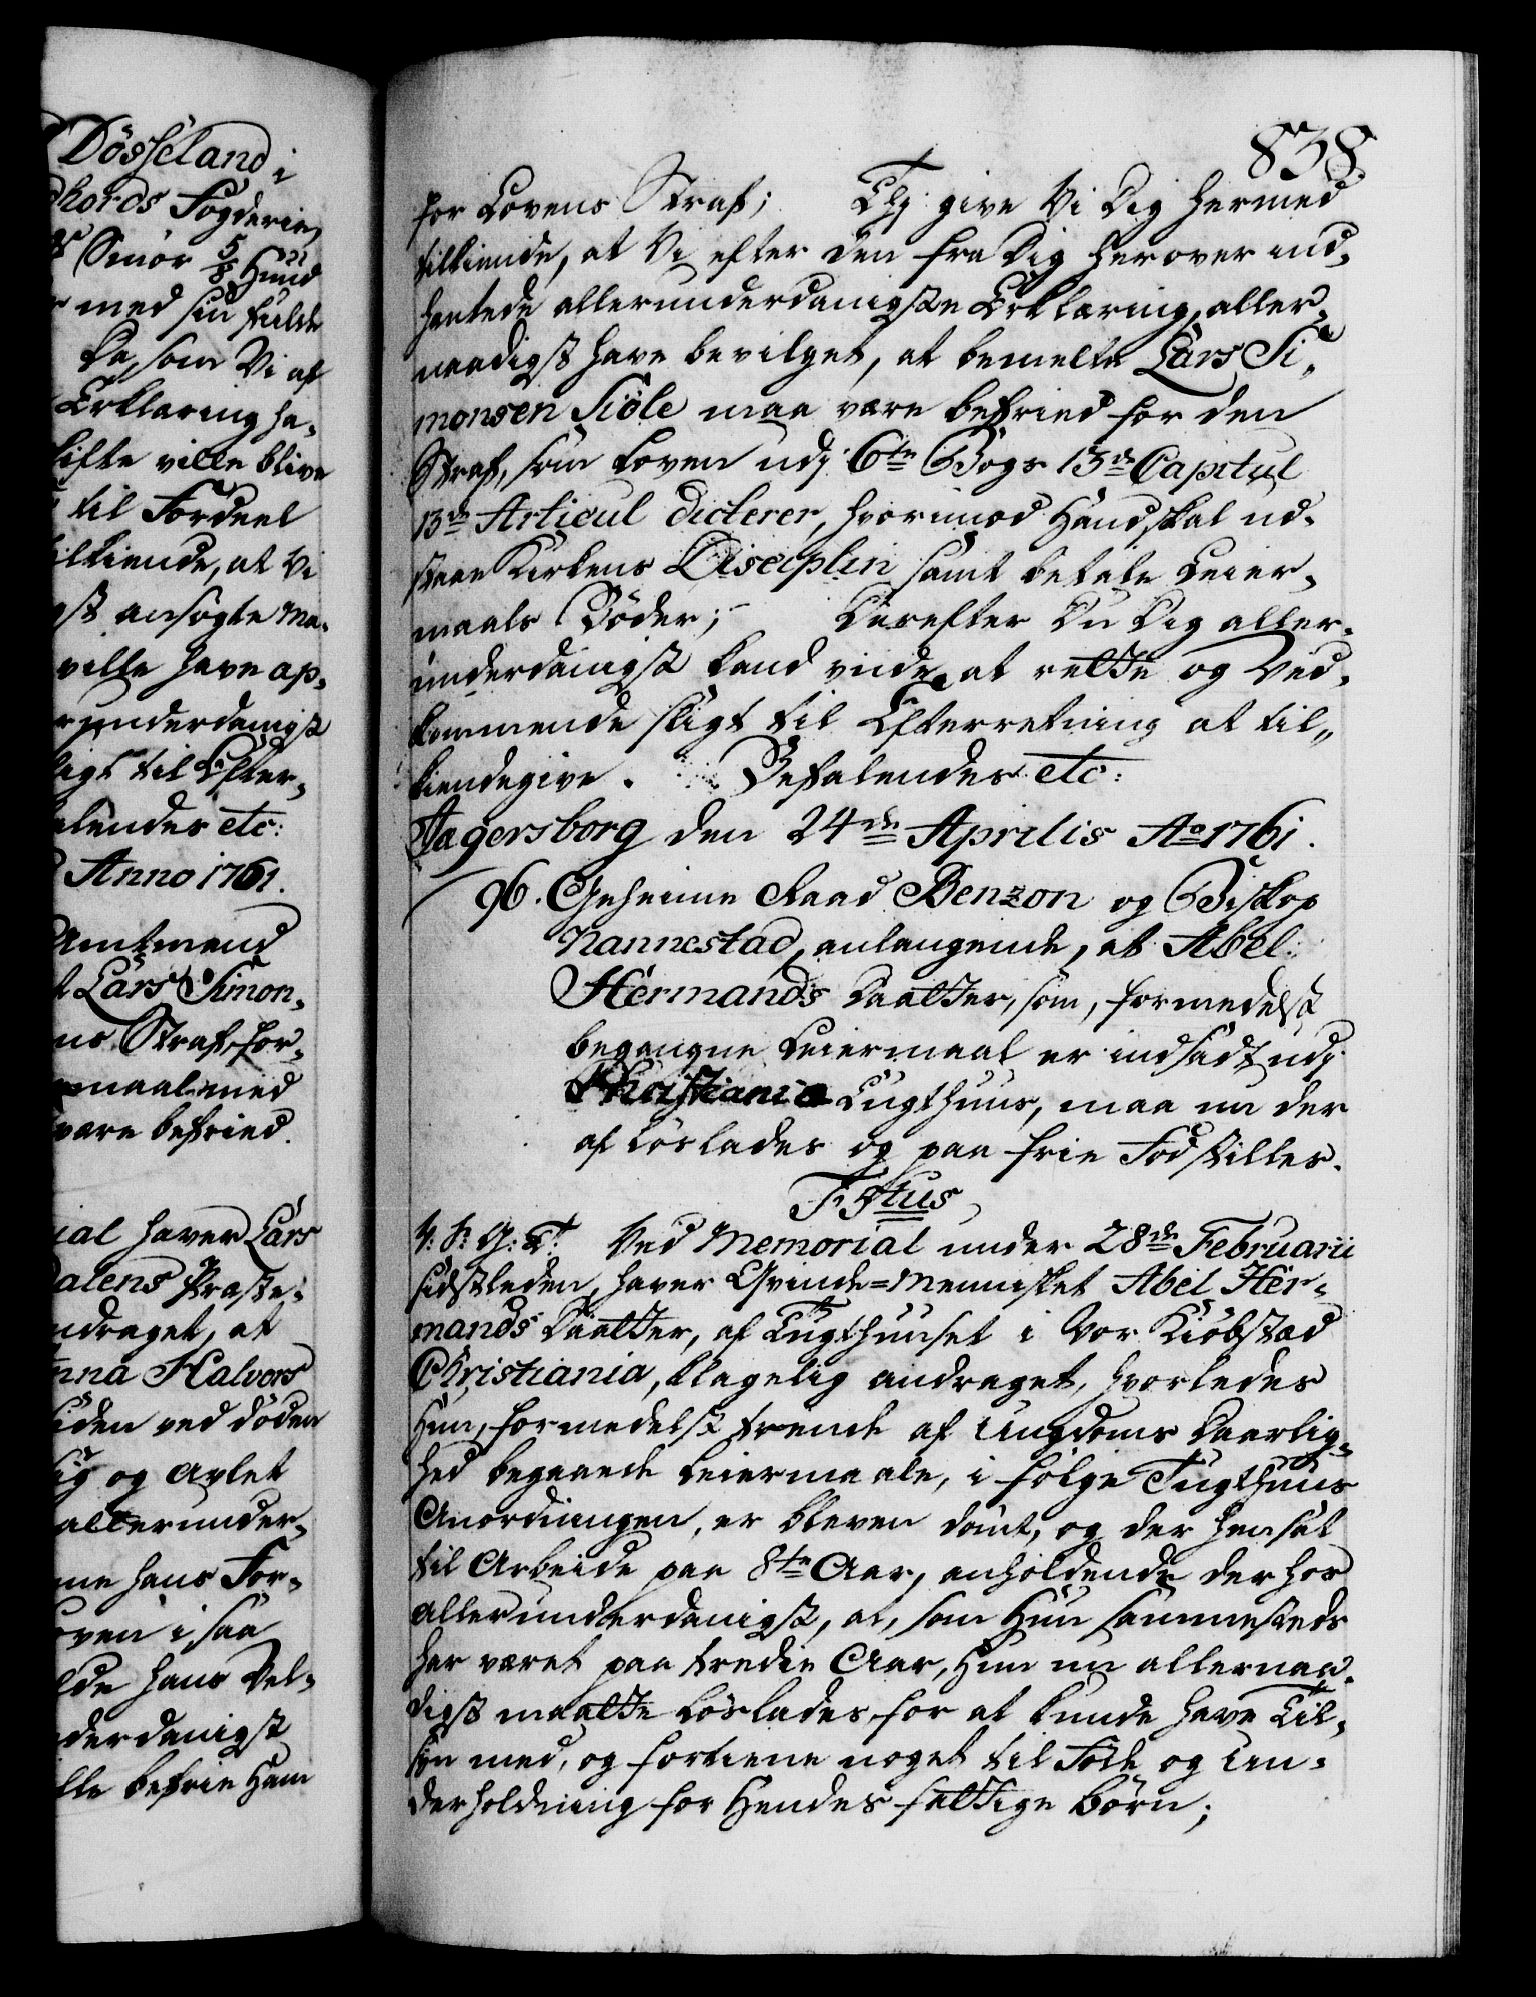 Dösseland i
hords Fogderie,
Smör 5/8 Hund
med sin fulde
Da, som Vi af
Erklæring ha„
skifte ville blive
til Fordeel
tilkiende, at Vi
ansøgte Ma„
ville have ap„
underdanigst
sligt til Efter„
alendes etc:
Anno 1761.
Amtmand
Lars Simon„
ns Straf for„
maal med
være befried.
ial haver Lars
dalens Præste„
ndraget, at
nna Halvors
siden ved döden
sig og avlet
allerunder„
ne hans For„
oven i saa
lde hans Vel„
derdanigst
lle befrie Ham
838.
for Lovens Straf; Thj give Vi Dig hermed
tilkiende, at Vi efter den fra Dig herover ind„
hentede allerunderdanigste Erklæring, aller„
naadigst have bevilget, at bemelte Lars Si„
monsen Siöle maa være befried for den
Straf, som Loven udj 6te Bogs 13de Capitul
13de Articul dicterer, hvorimod Hand skal ud„
staae Kirkens Disciplin samt betale Leier„
maals Böder; Derefter Du Dig aller„
underdanigst kand vide at rette og Ved„
kommende sligt til Efterretning at til„
kiendegive. Befalendes etc:
Jægersborg den 24de Aprilis Ao 1761.
96. Geheime Raad Benzon og Biskop
Nannestad, anlangende, at Abel
Hermands Daatter, som, formedelst
begangne Leiermaal er indsadt udj
Christiania Tugthuus, maa nu der
af löslades og paa frie Fod stilles.
F 5tus
V: S: G: T: Ved Memorial under 28de Februarii
sidstleden, haver Qvinde=Mennisket Abel Her„
mands Daatter, af Tugthuuset i Vor Kiöbstad
Christiania, klagelig andraget, hvorledes
Hun, formedelst trende af Ungdoms Daarlig„
hed begaaede Leiermaale, i fölge Tugthuus
Anordningen, er bleven dömt, og der hensat
til Arbeide paa 8te Aar, anholdende derhos
allerunderdanigst, at, som Hun sammesteds
har været paa tredie Aar, Hun nu allernaa„
digst maatte löslades for at kunde have Til„
syn med, og fortiene noget til Föde og Un„
derholdning for Hendes fattige Börn;